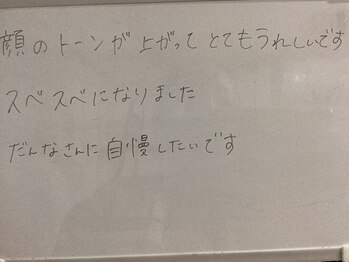 顔のトーンが上がってとてもうれしいです
スベスベになりました
だんなさんに自慢したいです